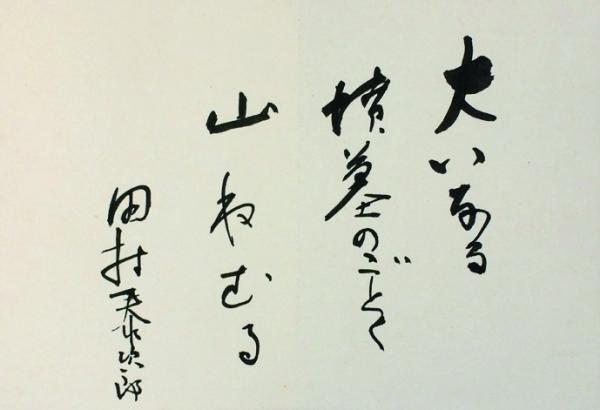 大いなる
墳墓のごとく
山ねむる
田村泰次郎